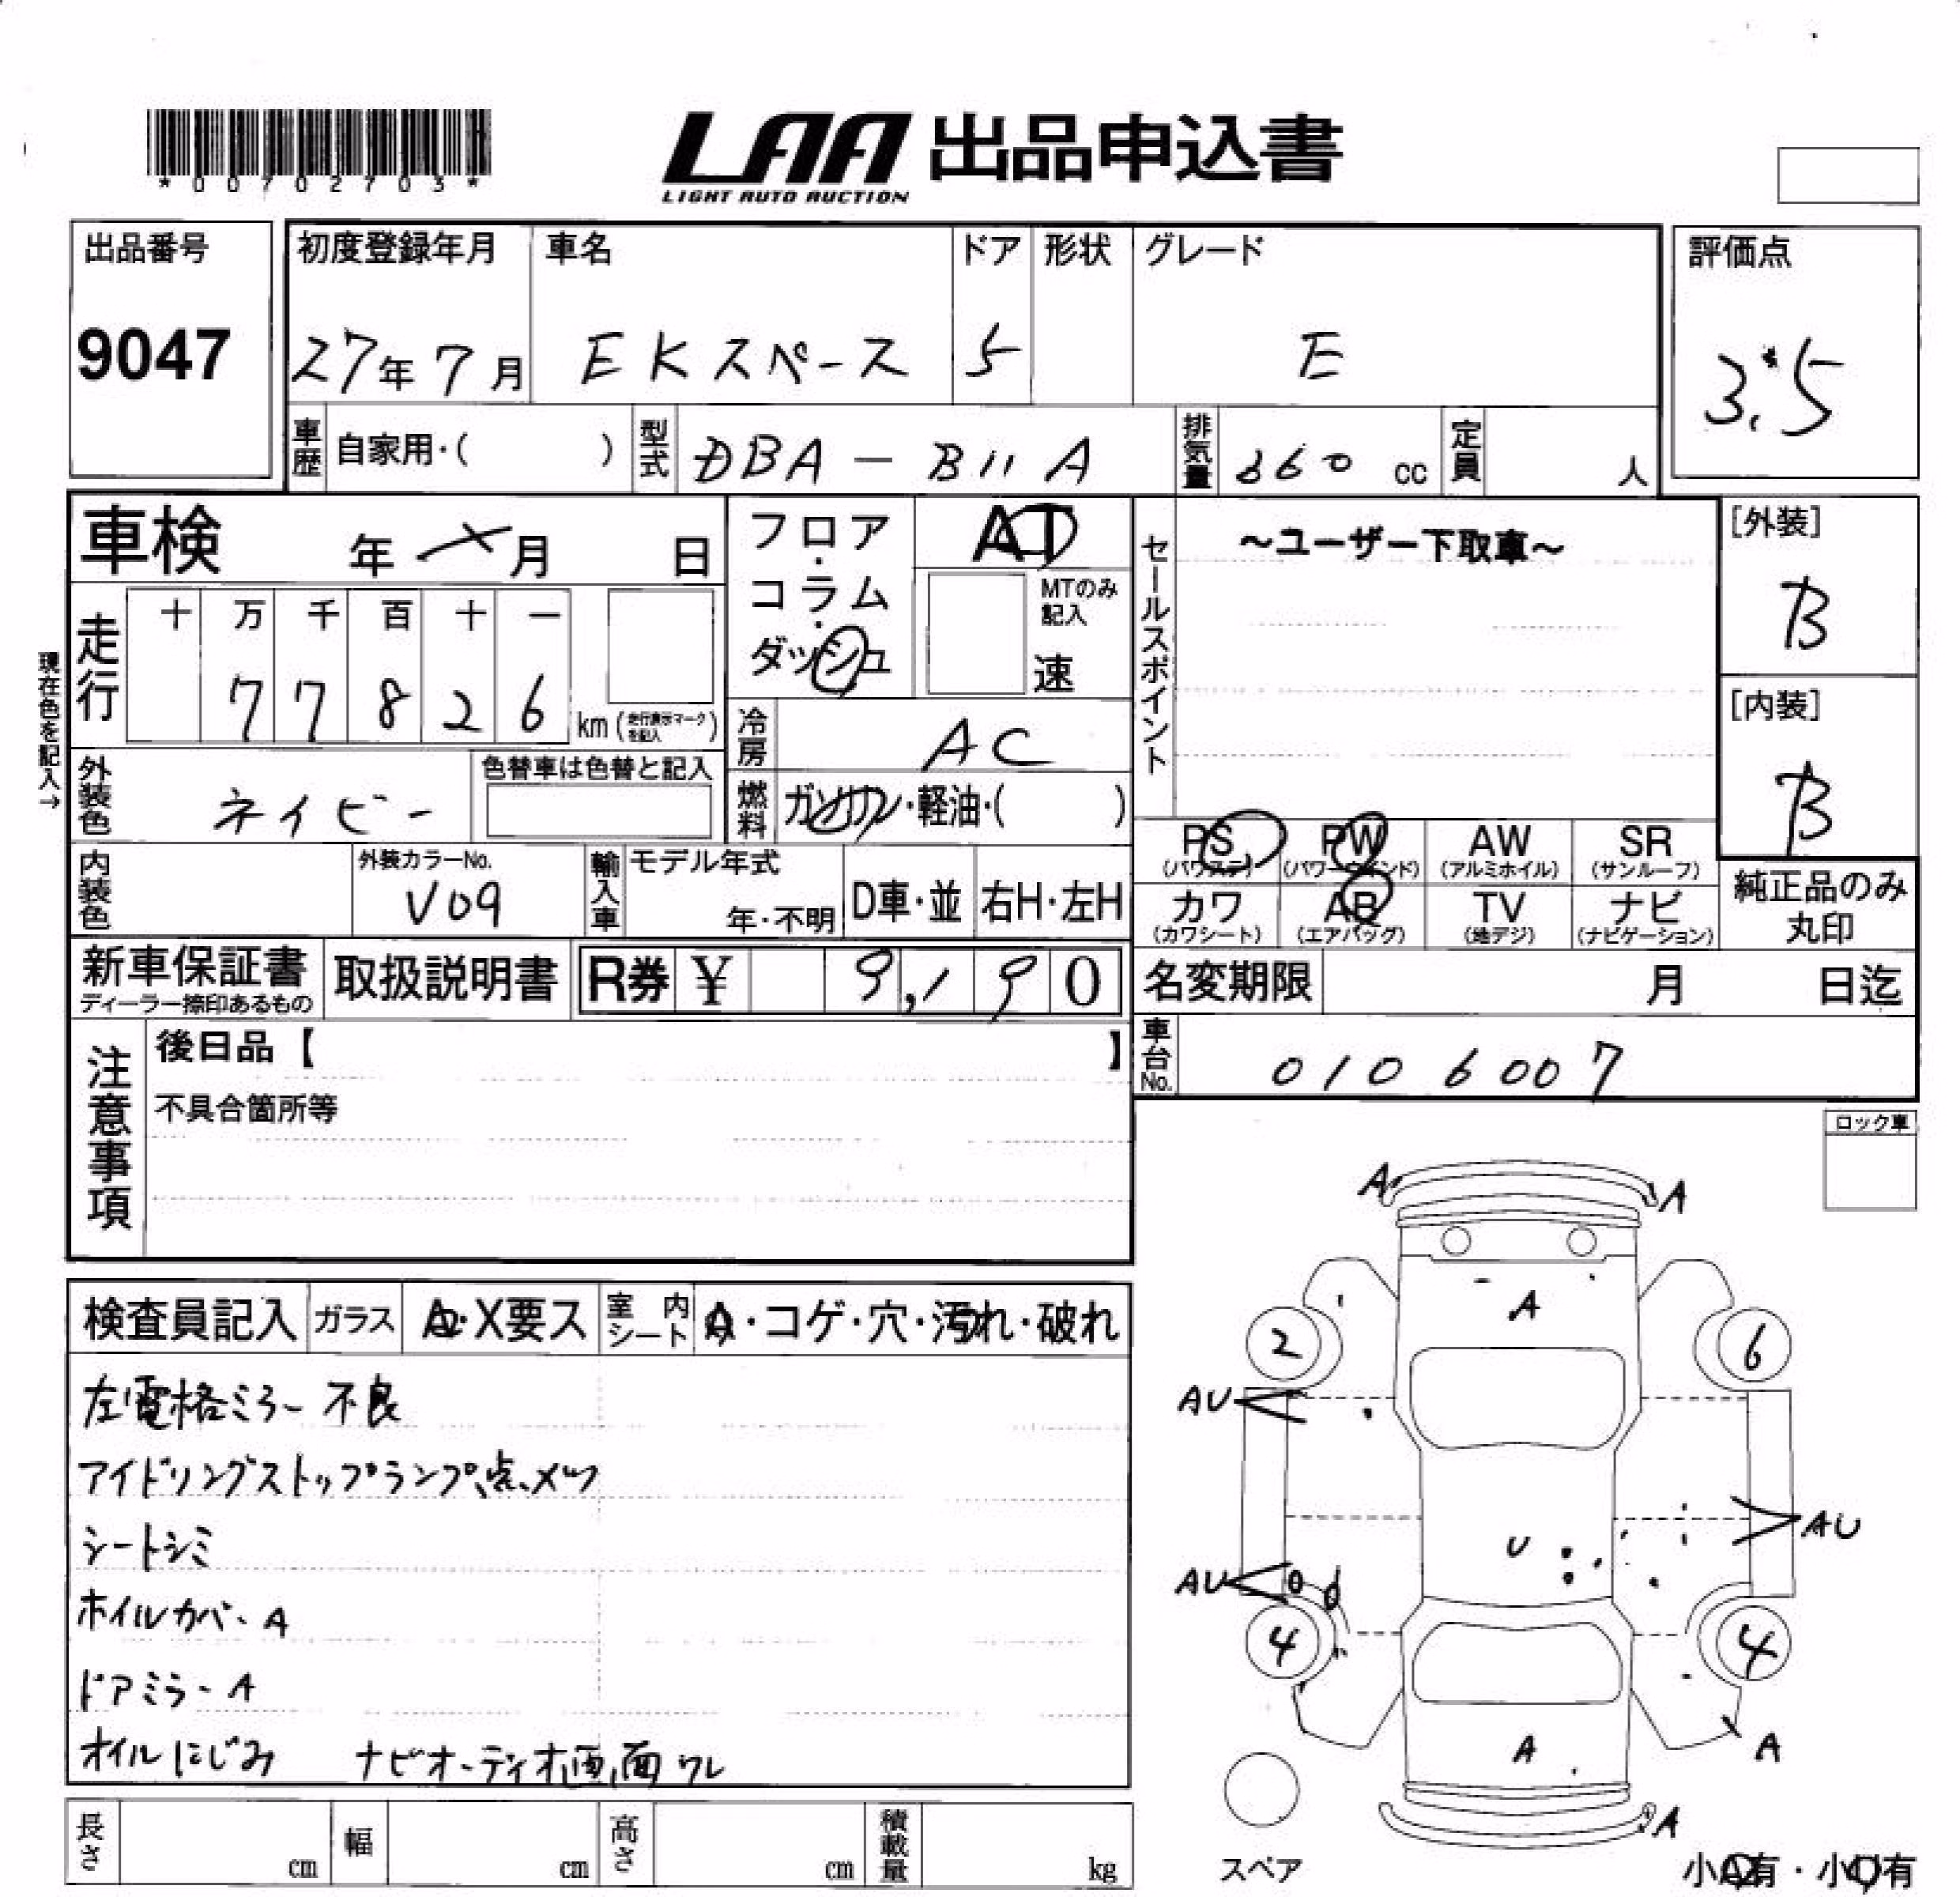 *00702703*
LAA 出品申込書
LIGHT AUTO AUCTION
出品番号
9047
初度登録年月
27年7月
車名
EKスペース
ドア
5
形状
グレード
E
評価点
3.5
車歴
自家用・( )
型式
DBA-B11A
排気量
660 cc
定員
人
車検
年 月 日
フロア・コラム・ダッシュ
AT
MTのみ記入
速
セールスポイント
~ユーザー下取車~
[外装]
B
[内装]
B
現在色を記入→
走行
十 万 千 百 十 一
7 7 8 2 6
km(走行表示マークを記入)
冷房
AC
外装色
ネイビー
色替車は色替と記入
燃料
ガソリン・軽油・( )
PS
(パワステ)
PW
(パワーウインド)
AW
(アルミホイル)
SR
(サンルーフ)
カワ
(カワシート)
AB
(エアバッグ)
TV
(地デジ)
ナビ
(ナビゲーション)
純正品のみ
丸印
内装色
外装カラーNo.
V09
輸入車
モデル年式
年・不明
D車・並
右H・左H
新車保証書
ディーラー捺印あるもの
取扱説明書
R券
¥
9,190
名変期限
月 日迄
車台No.
0106007
注意事項
後日品【 】
不具合箇所等
ロック車
検査員記入
ガラス
A・X要ス
室内シート
・コゲ・穴・汚れ・破れ
左電格ミラー不良
アイドリングストップランプ点メツ
シートシミ
ホイルカバーA
ドアミラーA
オイルにじみ ナビオーディオ画面ワレ
A
A
A
2
6
AU
AU
U
AU
4
4
A
A
A
スペア
小A有・小U有
長さ
cm
幅
cm
高さ
cm
積載量
kg